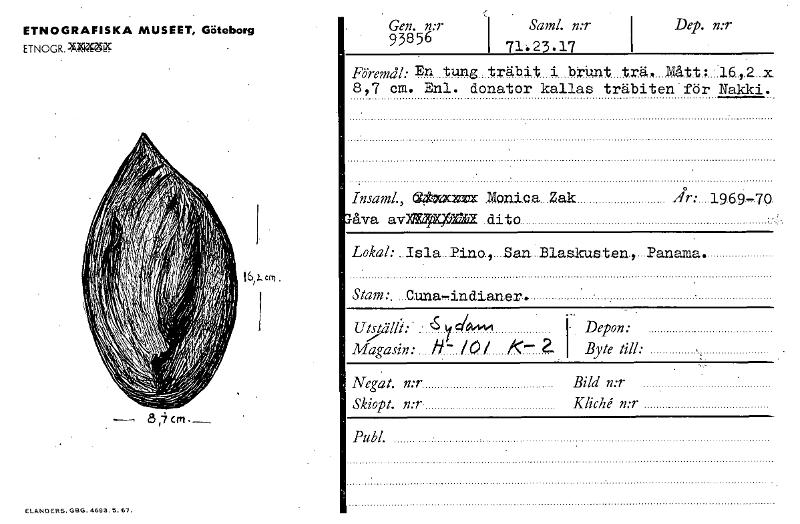 ETNOGRAFISKA MUSEET, Göteborg
ETNOGR.
16,2 cm.
8,7 cm.
ELANDERS. GBG. 4683. 5. 67.
Gen. n:r Saml. n:r Dep. n:r
93856 71.23.17
Föremål: En tung träbit i brunt trä. Mått: 16,2 x
8,7 cm. Enl. donator kallas träbiten för Nakki.
Insaml., Monica Zak År: 1969-70
Gåva av dito
Lokal: Isla Pino, San Blaskusten, Panama.
Stam: Cuna-indianer.
Utställt: Sydam Depon:
Magasin: H-101 K-2 Byte till:
Negat. n:r Bild n:r
Skiopt. n:r Kliché n:r
Publ.